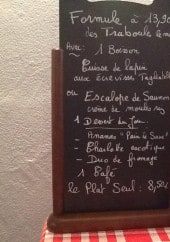 Formule à 13,90
des Traboules
Avec: 1 Boisson
Cuisse de lapin
aux écrevisses Tagliatelles
ou Escalope de Saumon
crème de
1 Dessert du Jour
- Ananas "Pain de Sucre"
- Charlotte exotique
- Duo de fromage
1 Café
le Plat Seul: 8,50